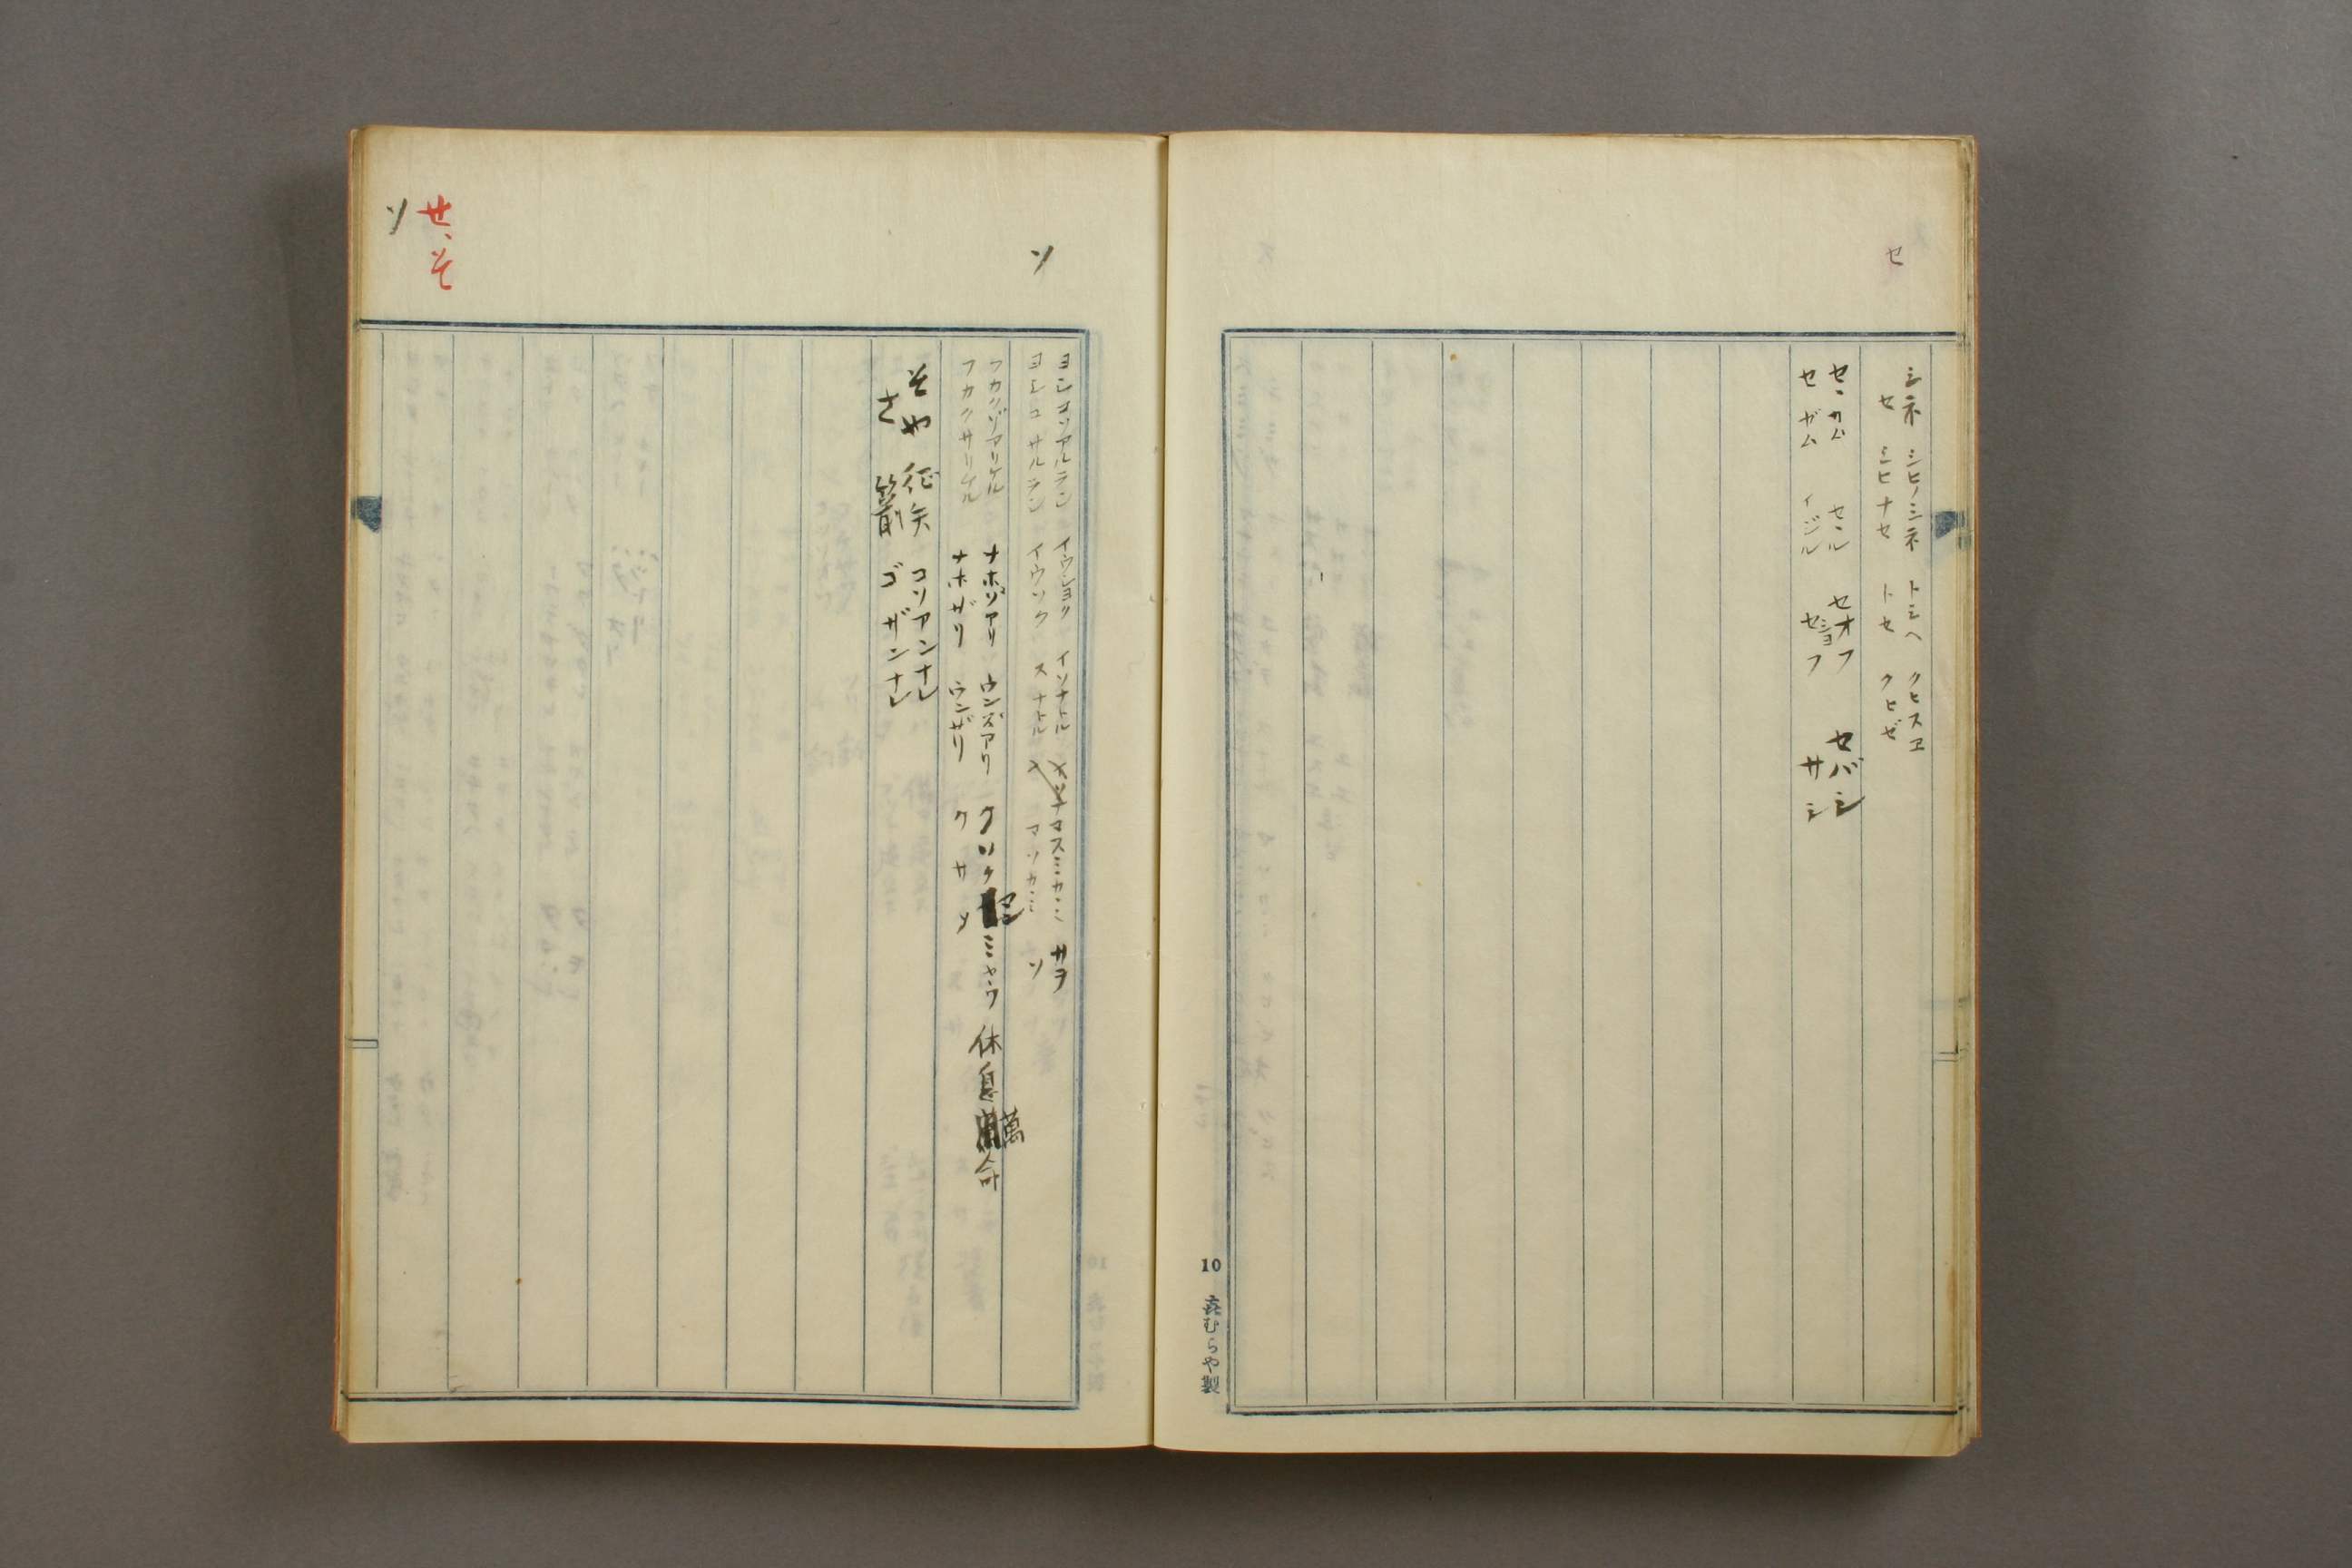 セ
シネ シヒノシネ トシヘ クヒスヱ
セ シヒナセ トセ クヒゼ
セヽカム セヽル セオフ セバシ
セガム イジル セショフ サシ
10 㐂むらや製
ソ
ヨシコソアルラン イウショク イソナトル マスミカヽミ サヲ
ヨシコサルラン イウソク スナトル マソカヽミ ソ
フカクゾアリケル ナホゾアリ ウンズアリ クソクマンミャウ 休息萬命
フカクサリケル ナホザリ ウンザリ クサメ
そや 征矢 コソアンナレ
さ 箭 ゴザンナレ
せ、そ
ソ